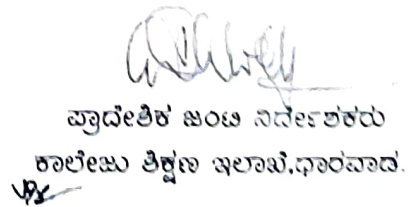 ಪ್ರಾದೇಶಿಕ ಜಂಟಿ ನಿರ್ದೇಶಕರು
ಕಾಲೇಜು ಶಿಕ್ಷಣ ಇಲಾಖೆ,ಧಾರವಾಡ.